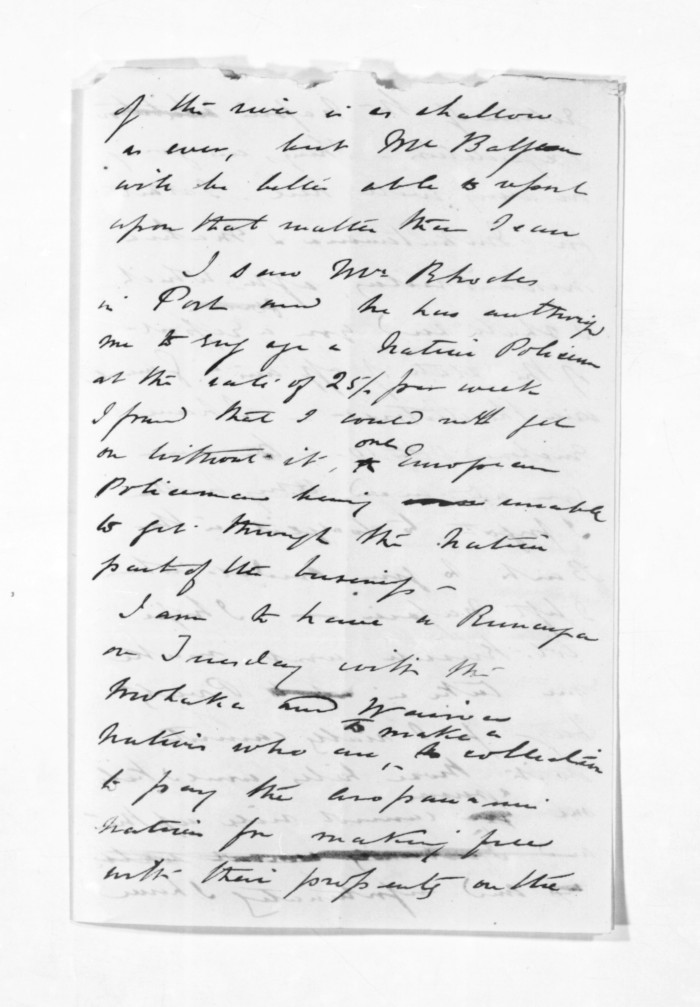 of the river is as shallow
as ever, but Mr Balfour
will be better able to report
upon that matter than I can
I saw Mr Rhodes
in Port and he has authorized
me to engage a Native Policeman
at the rate of 25/- per week
I found that I could not get
on without it, one European
Policeman being unable
to get through the Native
part of the business -
I am to have a Runanga
on Tuesday with the
Mohaka and Wairoa
Natives who are, to make a collection
to pay the
natives for making free
with their property on the